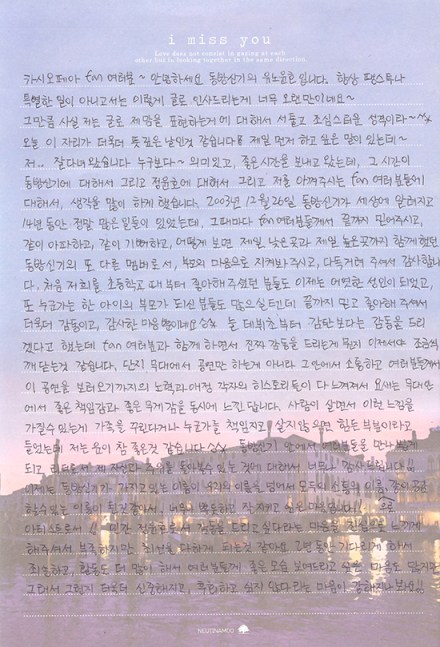 i miss you
Love does not consist in gazing at each
other but in looking together in the same direction
카시오페아 fan 여러분~ 안녕하세요 동방신기의 유노윤호입니다. 항상 팬스투나
특별한 일이 아니고서는 이렇게 글로 인사드리는게 너무 오랜만이네요~
그만큼 사실 저는 글로 제맘을 표현하는거에 대해서 서툴고 조심스러운 성격이라~^^
오늘 이 자리가 더욱더 뜻깊은 날인것 같습니다!! 제일 먼저 하고 싶은 말이 있는데~
저.. 잘다녀왔습니다 누구보다~ 의미있고, 좋은시간을 보내고 왔는데, 그 시간이
동방신기에 대해서 그리고 정윤호에 대해서 그리고 저를 아껴주시는 fan 여러분들에
대해서, 생각을 많이 하게 했습니다. 2003년 12월 26일 동방신기가 세상에 알려지고
14년 동안 정말 많은 일들이 있었는데, 그때마다 fan 여러분들께서 끝까지 믿어주시고,
같이 아파하고, 같이 기뻐하고, 어떻게 보면 제일 낮은곳과 제일 높은곳까지 함께 했던
동방신기의 또 다른 멤버로서, 부모의 마음으로 지켜봐주시고, 다독거려 주셔서 감사합니
다. 처음 저희를 초등학교 때부터 좋아해주셨던 분들도 이제는 어엿한 성인이 되었고,
또 누군가는 한 아이의 부모가 되신 분들도 많으실텐데 끝까지 믿고 좋아해 주셔서
더욱더 감동이고, 감사한 마음뿐이네요^^ 늘 데뷔초부터 감탄보다는 감동을 드리
겠다고 했는데 fan 여러분과 함께 하면서 진짜 감동을 드리는게 뭔지 이제서야 조금씩
깨닫는것 같습니다. 단지 무대에서 공연만 하는게 아니라 그안에서 소통하고 여러분들께서
이 공연을 보러오기까지의 노력과 애정 각자의 히스토리들이 다 느껴져서 요새는 무대안
에서 좋은 책임감과 좋은 무게감을 동시에 느낀답니다. 사람이 살면서 이런 느낌을
가질수 있는게 가족을 꾸린다거나 누군가를 책임지고 살지않으면 힘든 부분이라고
들었는데 저는 운이 참 좋은것 같습니다^^ 동방신기 안에서 여러분들을 만나 뵙게
되고, 리더로서 제 자신과 주위를 돌아볼수 있는 것에 대해서 너무나 감사드립니다!!
이제는 동방신기가 가지고 있는 이름이 각자의 이름을 넘어서 모두의 이름, 같이 공유
할수있는 이름이 된것같아서, 너무나 행복하고 지켜내고 싶은 마음입니다!!
아티스트로서 인간 정윤호로서 감동을 드리고 싶다라는 마음을 진심으로 느끼게
해주셔서 부족하지만 최선을 다하게 되는것 같아요 그동안 기다리게 해서
죄송하고, 활동도 더 많이 해서 여러분들께 좋은 모습 보여드리고 싶은 마음도 많지만
그래서 그런지 더욱더 신중해지고, 후회하고 싶지 않다라는 마음이 강해지나 봐요!!
NEUONAMOO